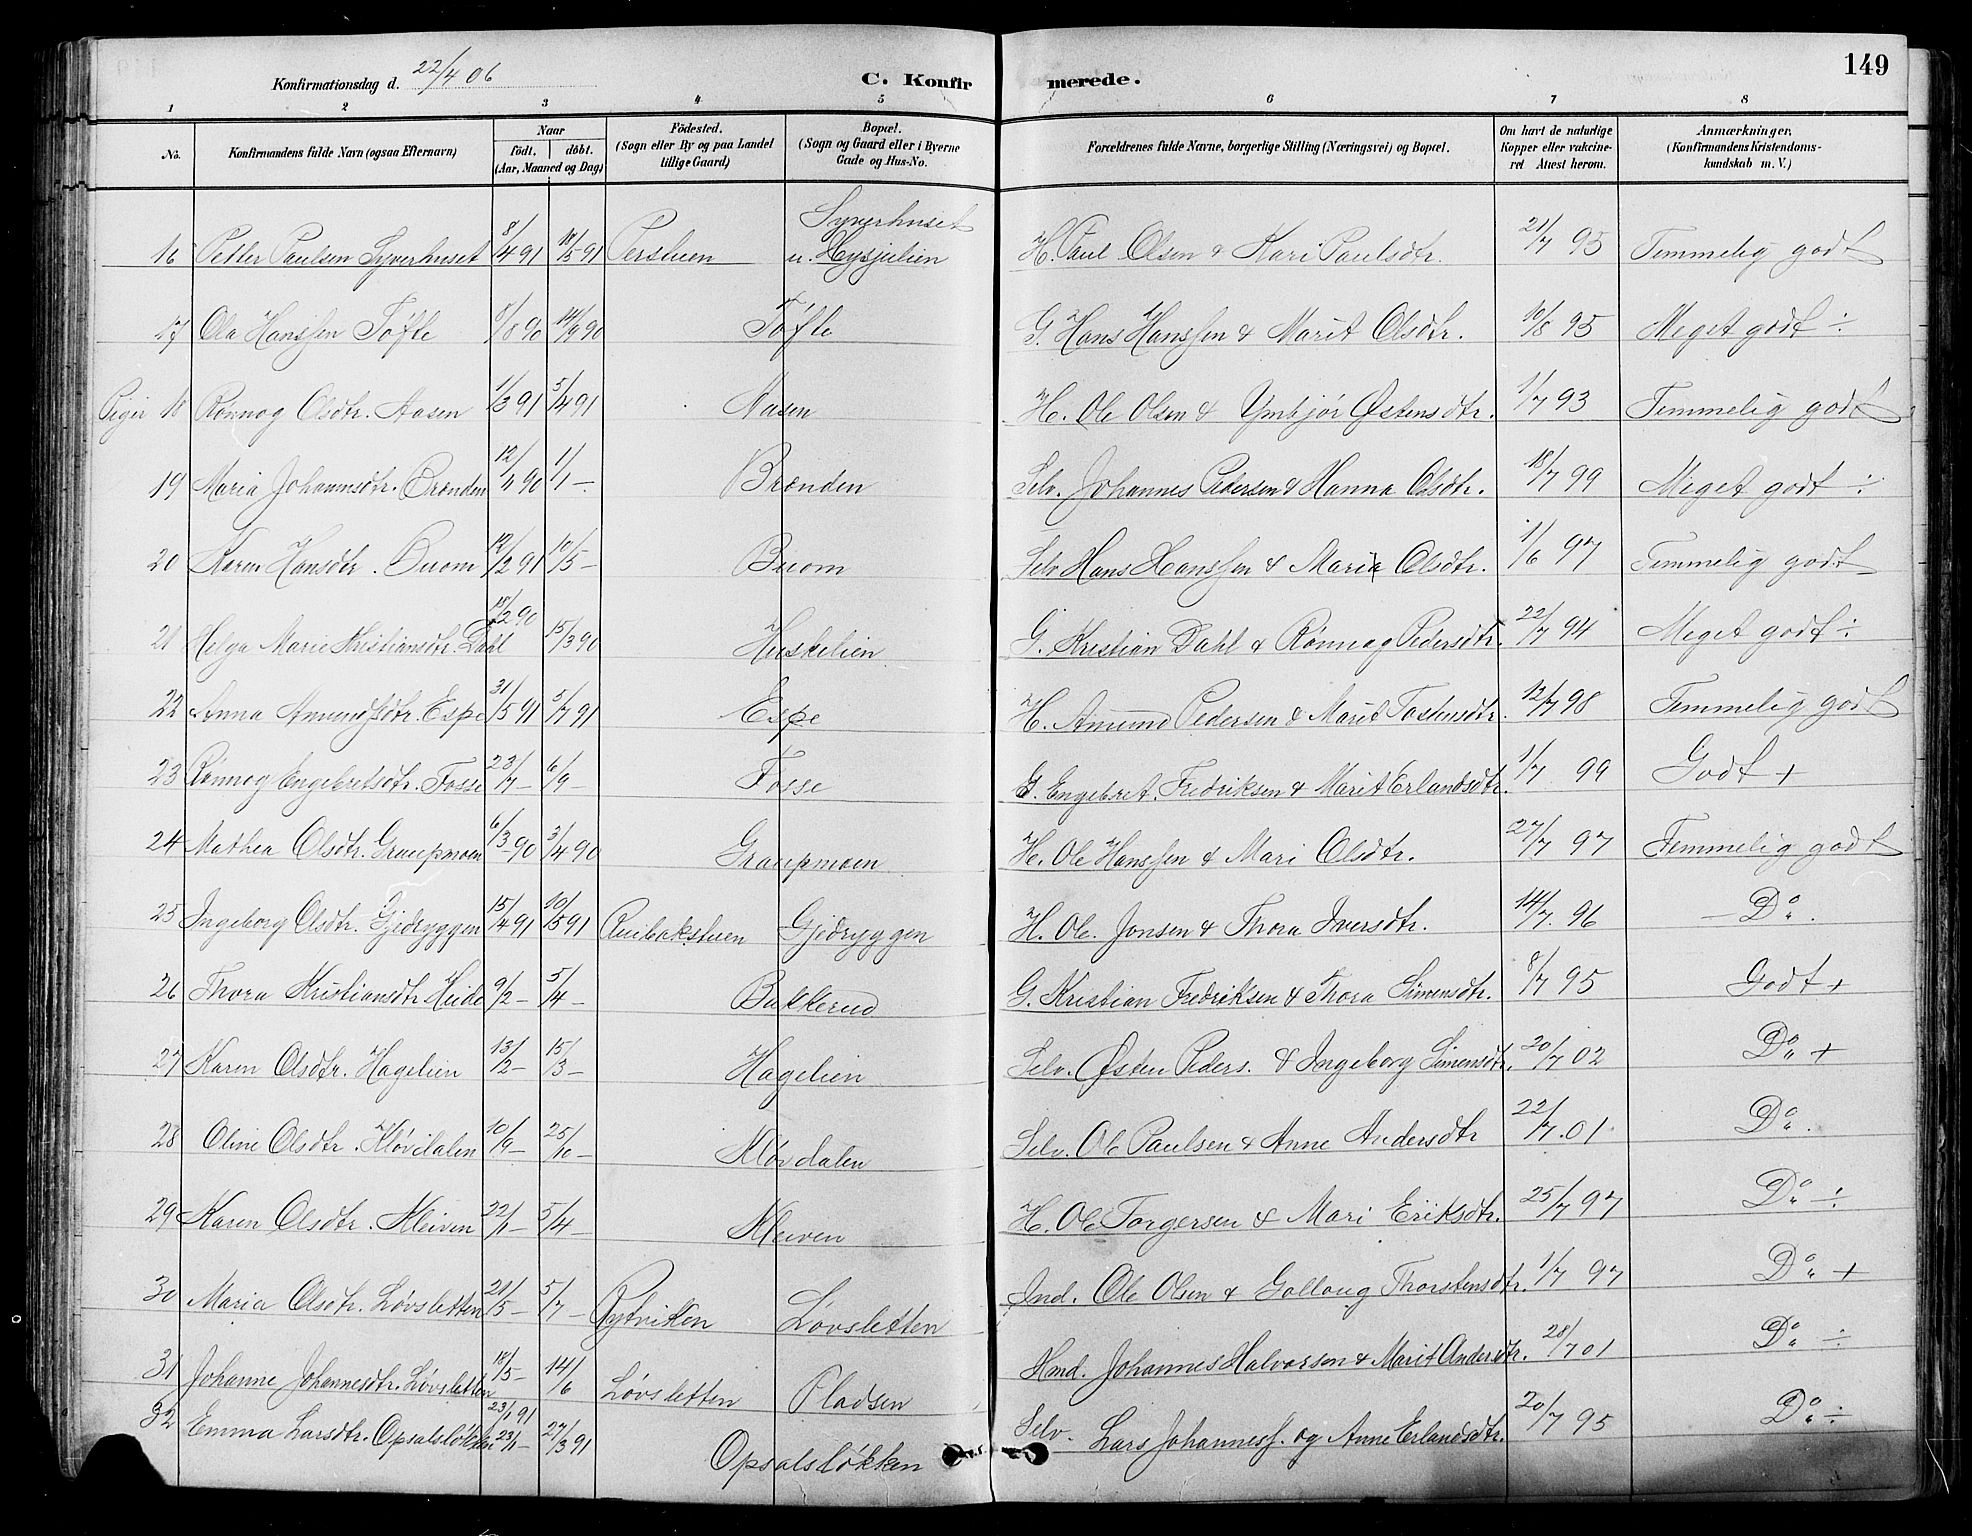 149
Konfirmationsdag d. 22/4 06
C. Konfirmerede.
1 2 3 4 5 6 7 8
No. Konfirmandens fulde Navn (ogsaa Efternavn) Naar födt. döbt. (Aar, Maaned og Dag) Födested. (Sogn eller By og paa Landet tillige Gaard) Bopæl. (Sogn og Gaard eller i Byerne Gade og Hus-No. Forældrenes fulde Navne, borgerlige Stilling (Næringsvei) og Bopæl. Om havt de naturlige Kopper eller vakcineret Attest herom. Anmærkninger, (Konfirmandens Kristendomskundskab m. V.)
16 Petter Paulsen Syverhuset 8/4 91 18/5 91 Perstuen Syverhuset u. H. Paul Olsen & Kari Paulsdtr. 21/7 95 Temmelig godt
17 Ola Hanssen Tøfte 8/8 90 14/9 90 Tøfte G. Hans Hanssen & Marit Olsdtr. 10/8 95 Meget godt ÷
Piger 18 Rönnog Olsdtr. Aasen 1/3 91 5/4 91 Aasen H. Ole Olsen & Ymbjör Østensdtr. 1/7 93 Temmelig godt
19 Maria Johannesdtr. Brænden 12/11 90 1/1 -. Brænden Selv. Johannes Pedersen & Hanna Olsdtr. 18/7 99 Meget godt ÷
20 Karen Hansdtr. Buom 12/2 91 10/5 - Buom Selv Hans Hanssen & Maria Olsdtr. 1/6 97 Temmelig godt
21 Helga Marie Kristiansdtr. Dahl 15/2 90 15/3 90 Huskelien G. Kristian Dahl & Rönnog Pedersdtr. 22/7 94 Meget godt ÷
22 Anna Amundsdtr. Espe 31/5 91 5/7 91 Espe H. Amund Pedersen & Marit Tostensdtr. 12/7 98 Temmelig godt
23 Rönnog Engebretsdtr. Fosse 23/7 - 6/9 - Fosse G. Engebret Fredriksen & Marit Erlandsdtr. 1/7 99 Godt +
24 Mathea Olsdtr. Graupmoen 6/3 90 3/4 90 Graupmoen H. Ole Hanssen & Mari Olsdtr. 27/7 97 Temmelig godt
25 Ingeborg Olsdtr. Gjedryggen 15/4 91 10/5 91 Gjedryggen H. Ole Jonsen & Thora Iversdtr. 14/7. 96 - Do.
26 Thora Kristiansdtr Heide 9/2 - 5/4 - Bakkerud G. Kristian Fredriksen & Thora Simensdtr. 8/7 95 Godt +
27 Karen Olsdtr. Hagelien 13/2 - 15/3 - Hagelien Selv. Østen Peders. & Ingeborg Simensdtr. 20/7 02 Do +
28 Oline Olsdtr. Kløvdalen 10/9 - 25/10 - Kløvdalen Selv. Ole Paulsen & Anne Andersdtr 22/7. 01 Do.
29 Karen Olsdtr. Kleiven 22/1 - 5/4 - Kleiven H. Ole Torgersen & Mari Eriksdtr. 25/7 97 Do ÷
30 Maria Olsdtr. Løvsletten 21/5 - 5/7 - Rytviken Løvsletten Ind. Ole Olsen & Gollaug Thorstensdtr. 1/7 97 Do +
31 Johanne Johannesdtr. Løvsletten 18/5 - 14/6 Løvsletten Pladsen Hmd. Johannes Halvorsen & Marit Andersdtr. 28/7 01 Do ÷
32 Emma Larsdtr. Opsalsløkken 23/1 91 23/1 - 27/3 91 Opsalsløkken Selv. Lars Johanness. og Anne Erlandsdtr. 20/7 95 Do ÷